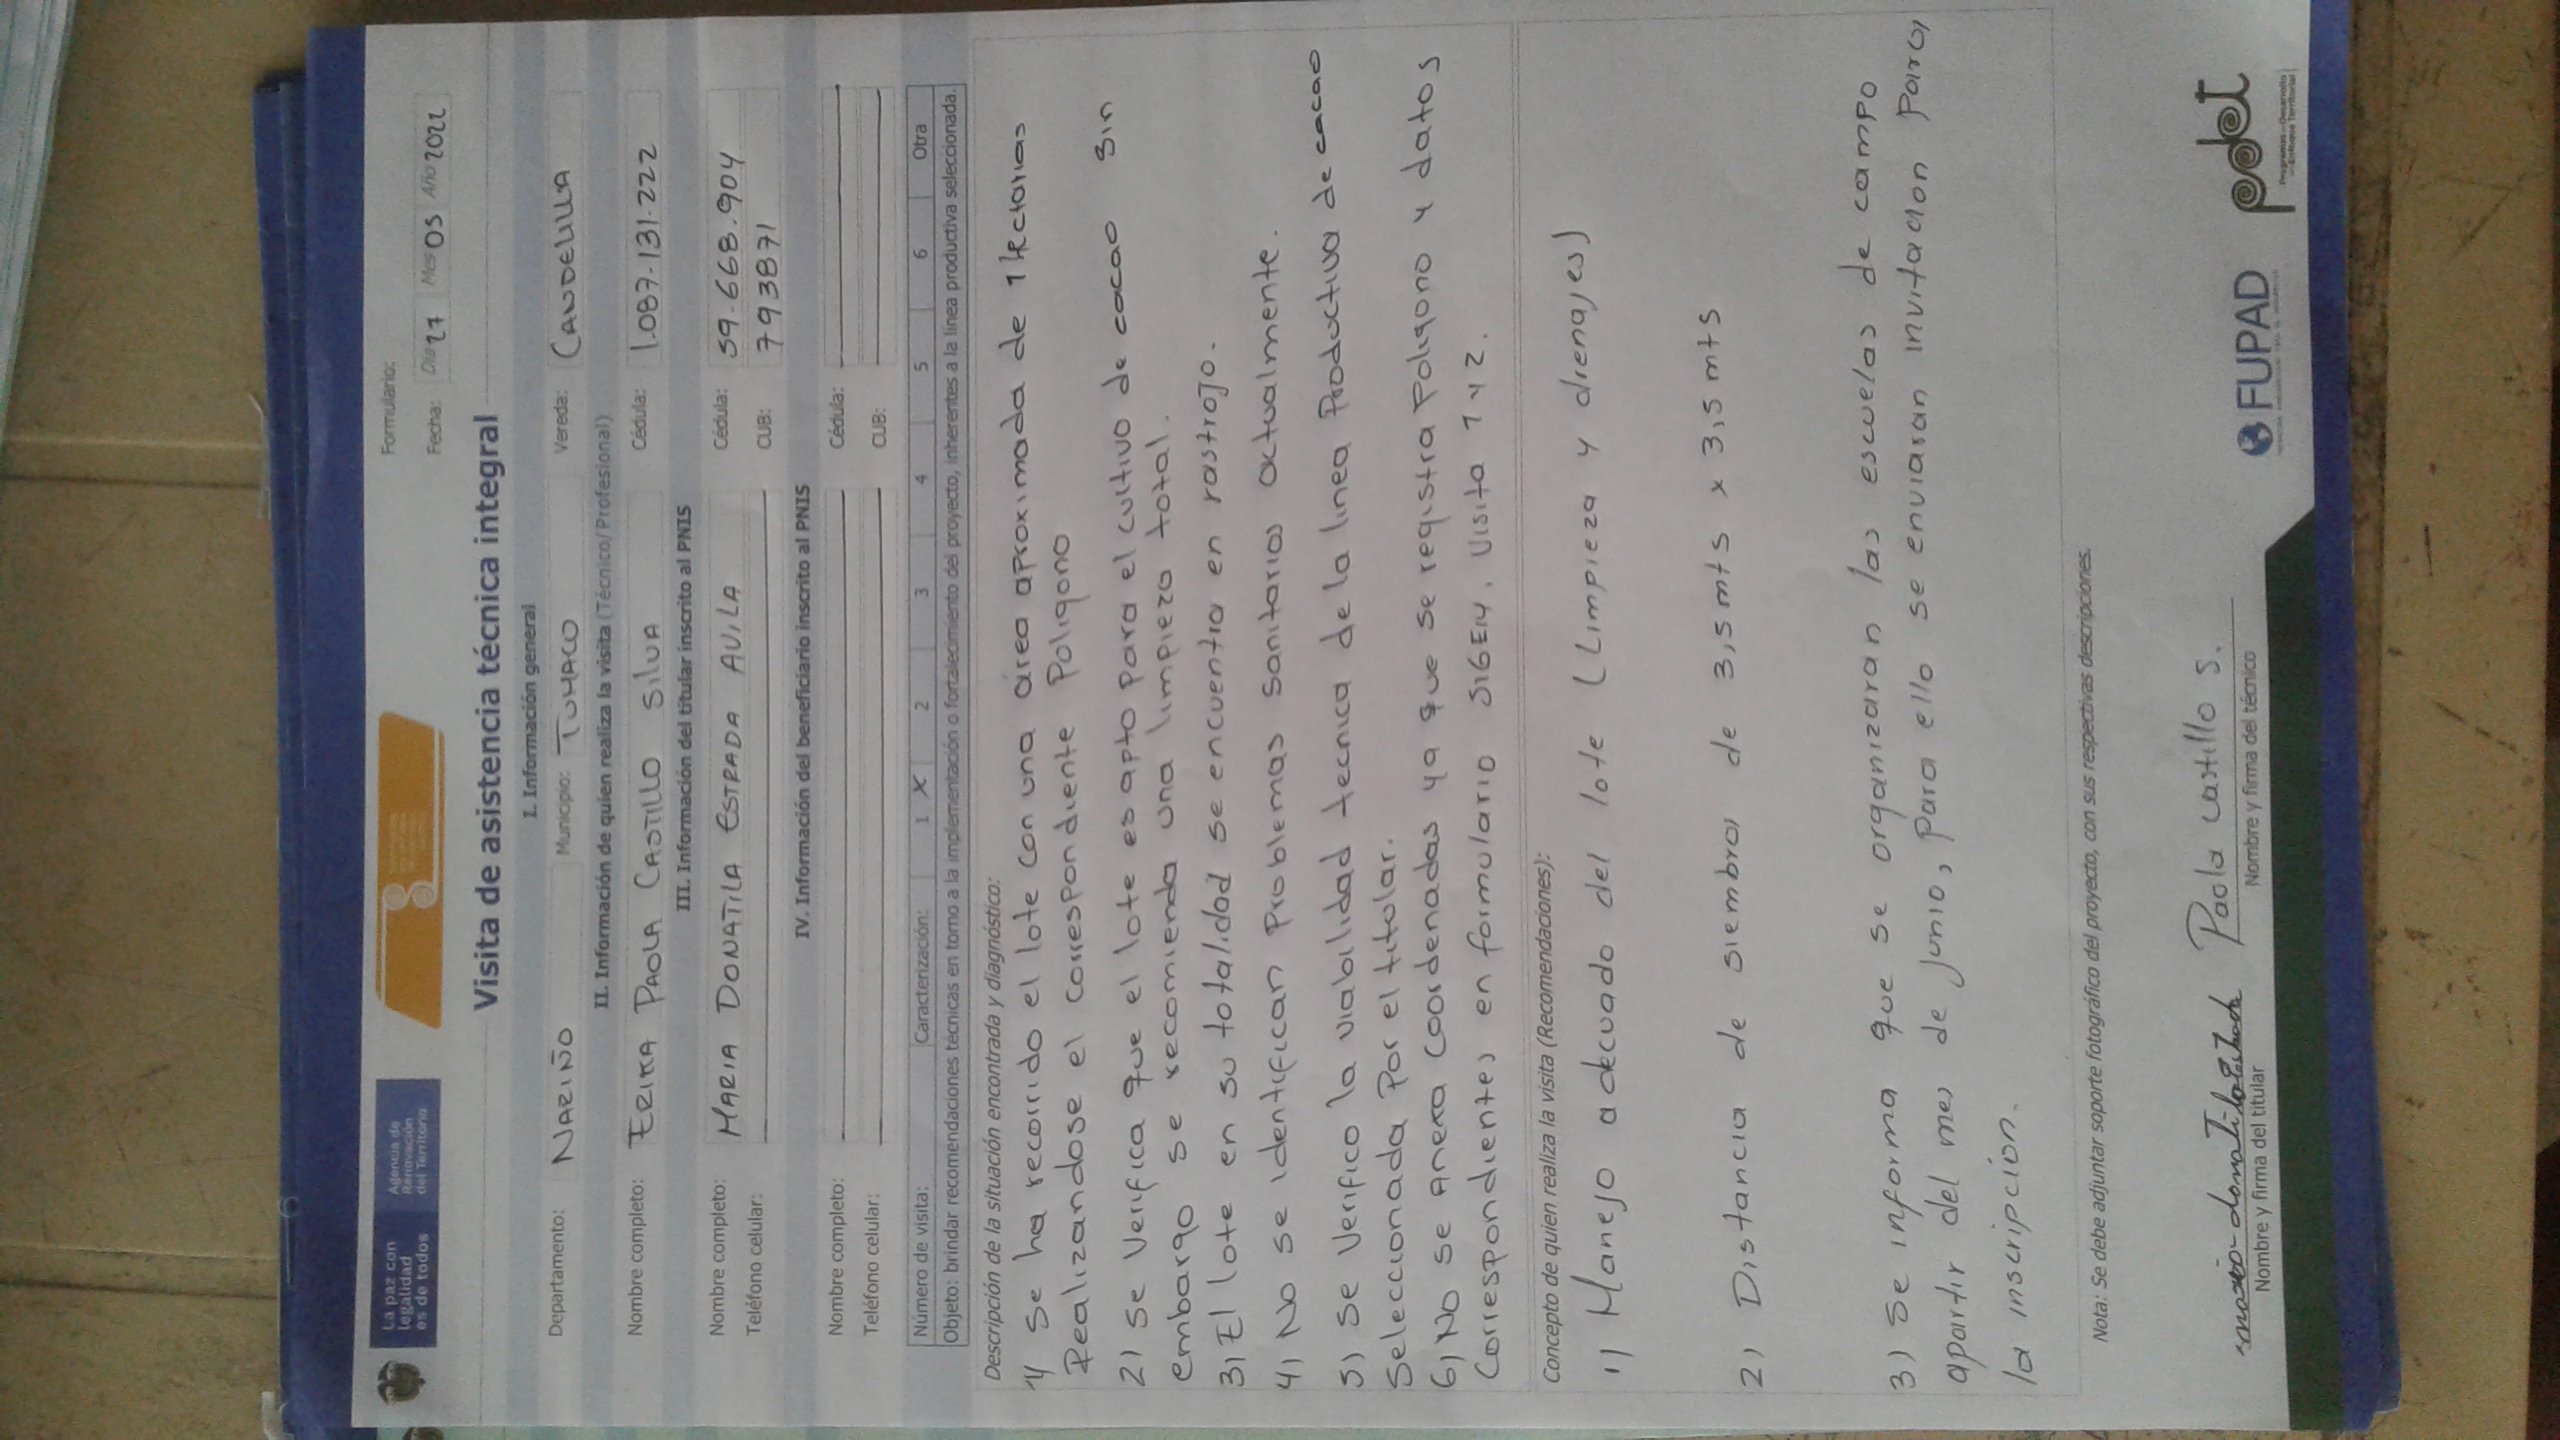 La paz con
legalidad
es de todos
Agencia de
Renovación
del Territorio
Formulario:
Fecha: Día 27 Mes 05 Año 2021
Visita de asistencia técnica integral
I. Información general
Departamento: NARIÑO Municipio: TUMACO Vereda: CANDELILLA
II. Información de quien realiza la visita (Técnico/Profesional)
Nombre completo: ERIKA PAOLA CASTILLO SILVA Cédula: 1.087.131.222
III. Información del titular inscrito al PNIS
Nombre completo: MARIA DONATILA ESTRADA AVILA Cédula: 59.668.904
Teléfono celular: CUB: 793871
IV. Información del beneficiario inscrito al PNIS
Nombre completo: Cédula:
Teléfono celular: CUB:
Número de visita: Caracterización: 1 X 2 3 4 5 6 Otra
Objeto: brindar recomendaciones técnicas en torno a la implementación o fortalecimiento del proyecto, inherentes a la línea productiva seleccionada.
Descripción de la situación encontrada y diagnóstico:
1) Se ha recorrido el lote con una área aproximada de 1 Hectarias
Realizandose el correspondiente Poligono
2) Se Verifica que el lote es apto para el cultivo de cacao sin
embargo se recomienda una limpieza total.
3) El lote en su totalidad se encuentra en rastrojo.
4) No se identifican Problemas sanitarios actualmente.
5) Se Verifico la viabilidad tecnica de la linea Productiva de cacao
Seleccionada Por el titular.
6) No se Anexa Coordenadas ya que se registra Poligono y datos
Correspondientes en formulario SIGEIN. Visita 1 y 2.
Concepto de quien realiza la visita (Recomendaciones):
1) Manejo adecuado del lote (Limpieza y drenajes)
2) Distancia de siembra de 3,5 mts x 3,5 mts
3) Se informa que se organizaran las escuelas de campo
apartir del mes de Junio, Para ello se enviaran invitacion para
la inscripcion.
Nota: Se debe adjuntar soporte fotográfico del proyecto, con sus respectivas descripciones.
Paola Castillo S.
Nombre y firma del titular
Nombre y firma del técnico
FUPAD
pdet
Programas de Desarrollo
con Enfoque Territorial